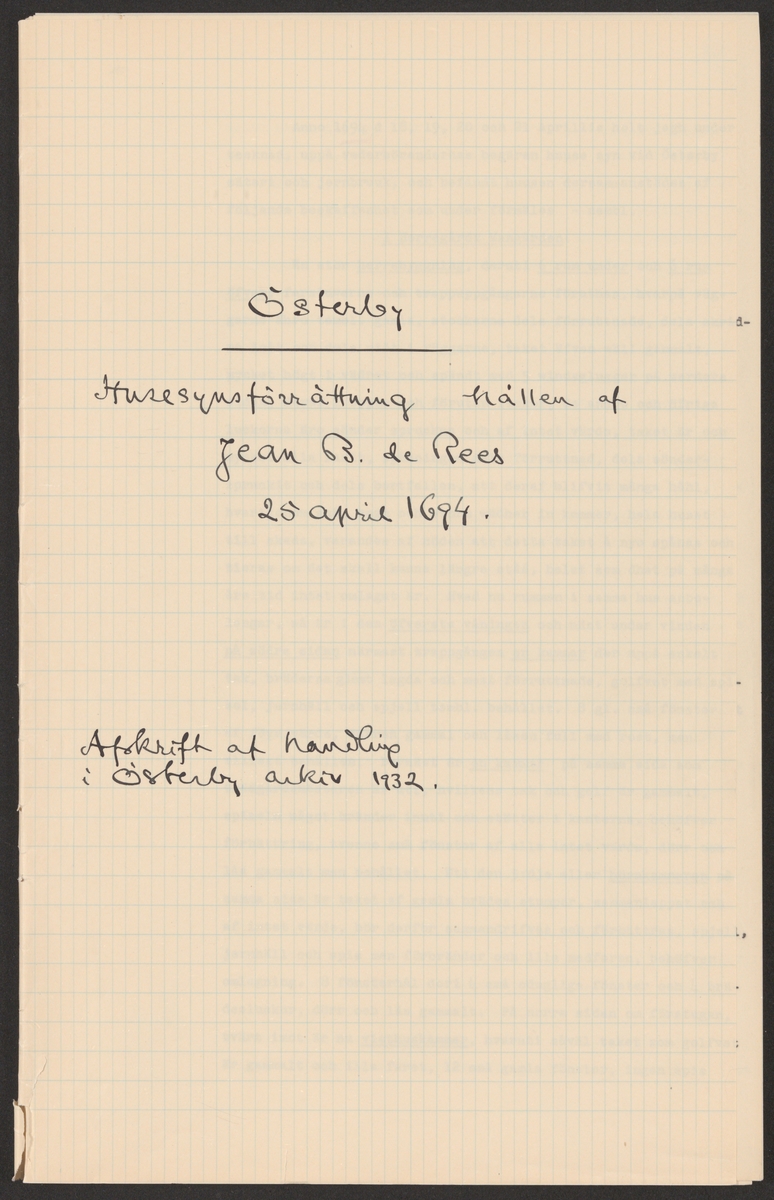 Österby
Husesynsförrättning hållen af
Jean B. de Rees
25 april 1694.
Afskrift af handling
i Österby arkiv 1932.